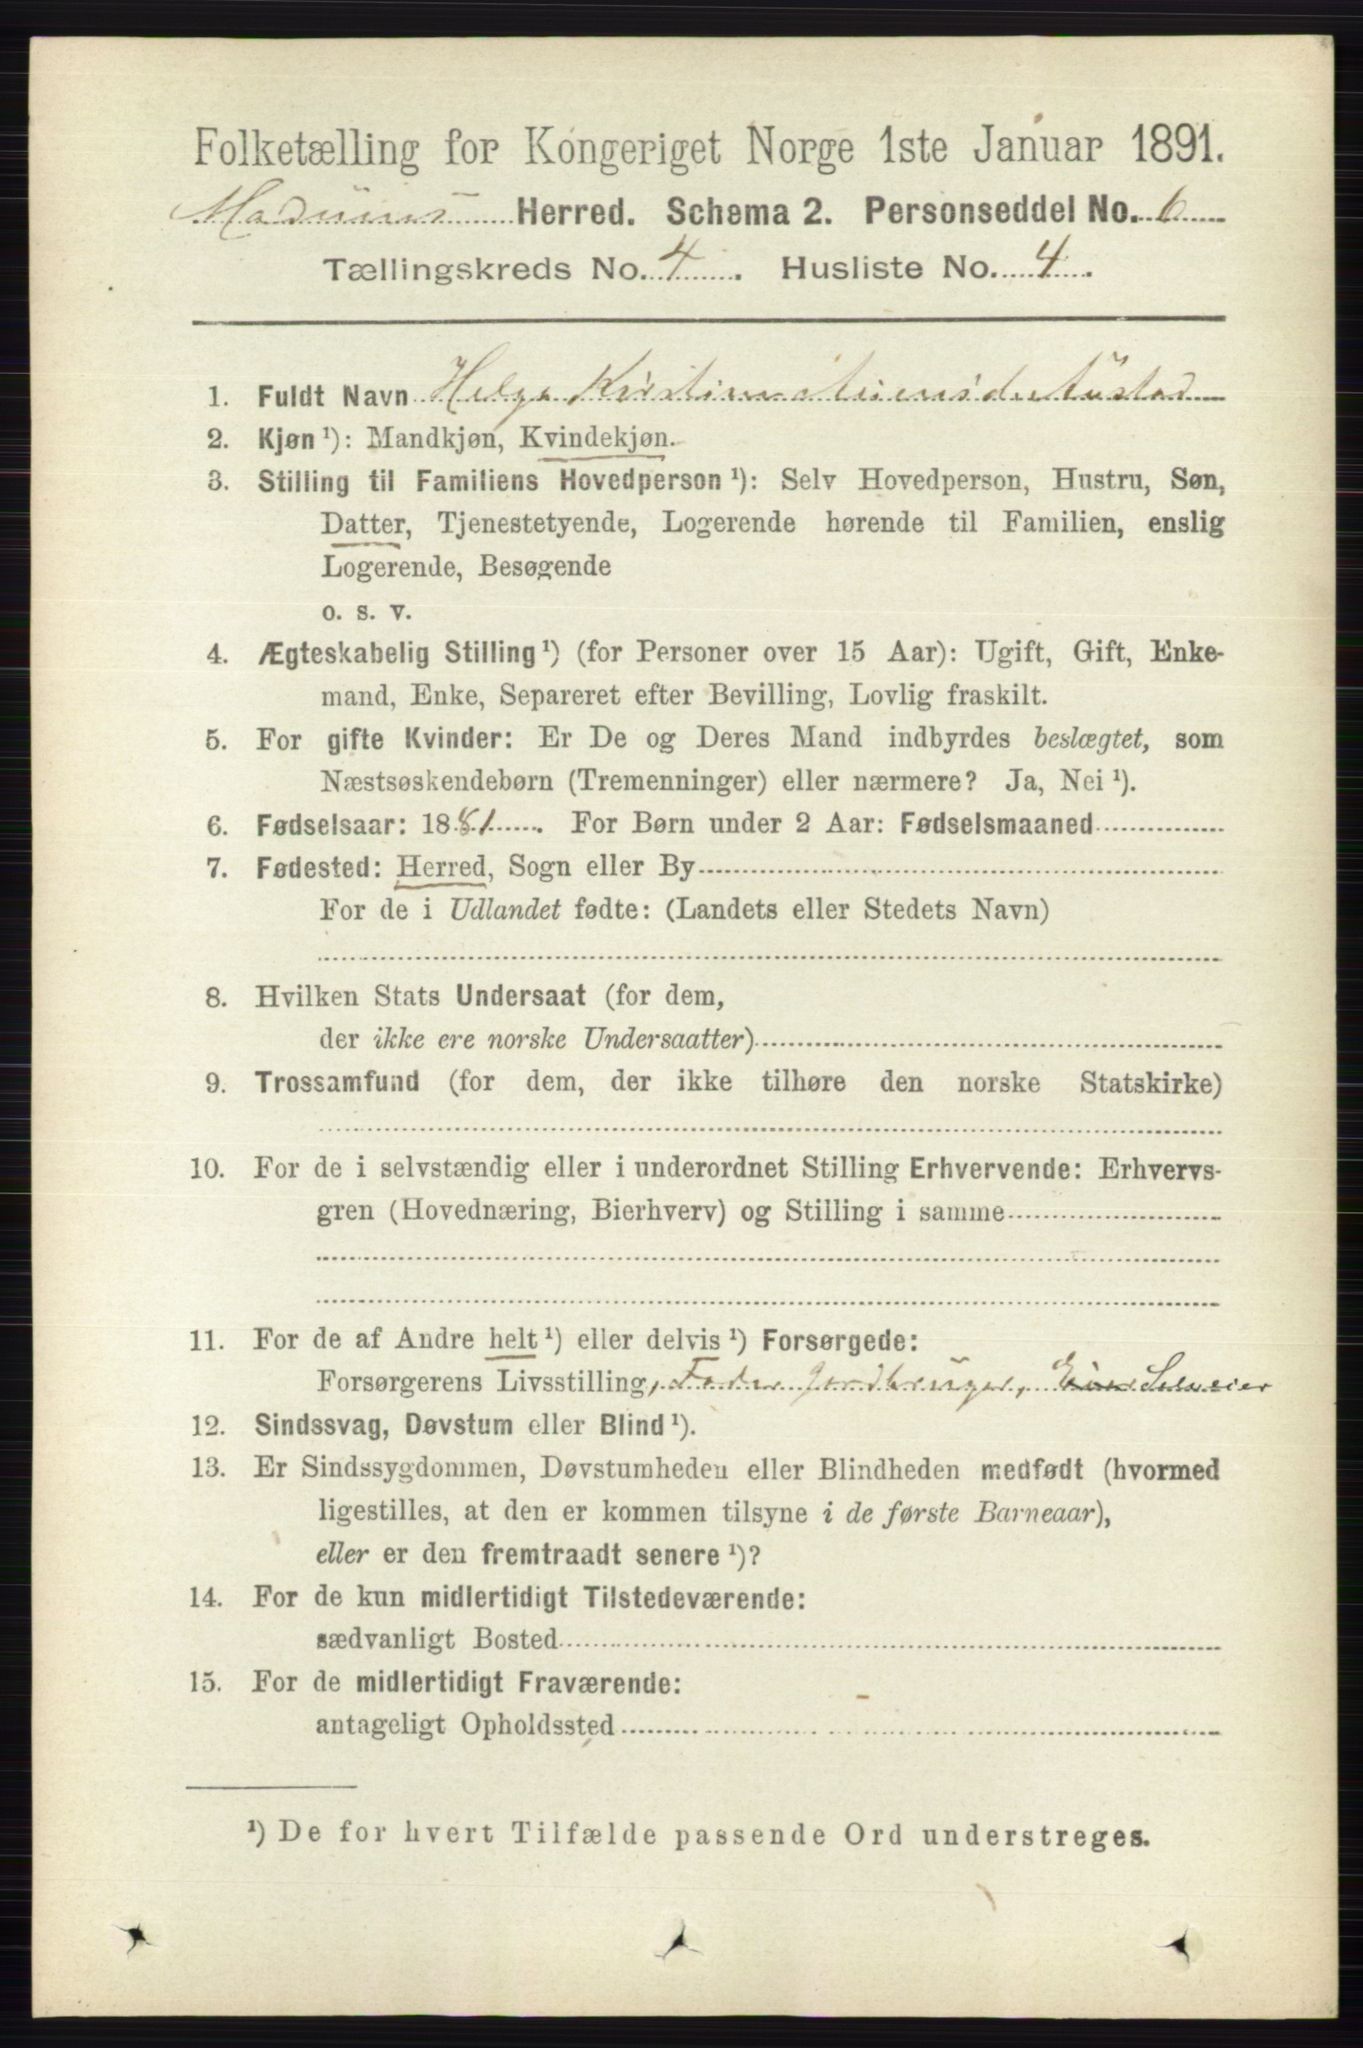 Folketælling for Kongeriget Norge 1ste Januar 1891.
Modums Herred. Schema 2. Personseddel No. 6
Tællingskreds No. 4. Husliste No. 4.
1. Fuldt Navn Helga Kristine Austad
2. Kjøn ¹): Mandkjøn, Kvindekjøn.
3. Stilling til Familiens Hovedperson ¹): Selv Hovedperson, Hustru, Søn,
Datter, Tjenestetyende, Logerende hørende til Familien, enslig
Logerende, Besøgende
o. s. v.
4. Ægteskabelig Stilling ¹) (for Personer over 15 Aar): Ugift, Gift, Enke-
mand, Enke, Separeret efter Bevilling, Lovlig fraskilt.
5. For gifte Kvinder: Er De og Deres Mand indbyrdes beslægtet, som
Næstsøskendebørn (Tremenninger) eller nærmere? Ja, Nei ¹).
6. Fødselsaar: 1881. For Børn under 2 Aar: Fødselsmaaned
7. Fødested: Herred, Sogn eller By
For de i Udlandet fødte: (Landets eller Stedets Navn)
8. Hvilken Stats Undersaat (for dem,
der ikke ere norske Undersaatter)
9. Trossamfund (for dem, der ikke tilhøre den norske Statskirke)
10. For de i selvstændig eller i underordnet Stilling Erhvervende: Erhvervs-
gren (Hovednæring, Bierhverv) og Stilling i samme
11. For de af Andre helt ¹) eller delvis ¹) Forsørgede:
Forsørgerens Livsstilling, Fader Jordbruger, Selveier
12. Sindssvag, Døvstum eller Blind ¹).
13. Er Sindssygdommen, Døvstumheden eller Blindheden medfødt (hvormed
ligestilles, at den er kommen tilsyne i de første Barneaar),
eller er den fremtraadt senere ¹)?
14. For de kun midlertidigt Tilstedeværende:
sædvanligt Bosted
15. For de midlertidigt Fraværende:
antageligt Opholdssted
¹) De for hvert Tilfælde passende Ord understreges.